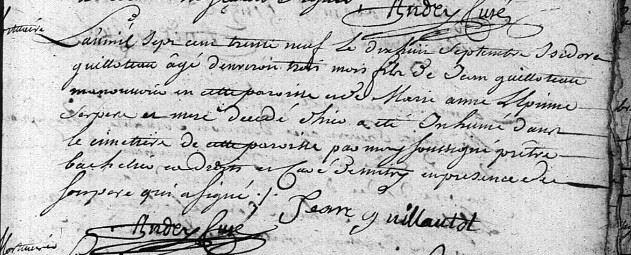 Andry Curé
mortuaire
L'an mil sept cent trente neuf le dix huit Septembre Isidore
guilloteau agé d'environ trois mois fils de Jean guilloteau
manouvrié en cette paroisse et de Marie anne
ses pere et mere decedé d'hier a été Inhumé dans
le cimetiere de cette paroisse par moy soussigné prêtre
bachelier en Droits et Curé en presence de
son pere qui a signé ./.
Jean guillautot
Andry Curé
Mortuaire